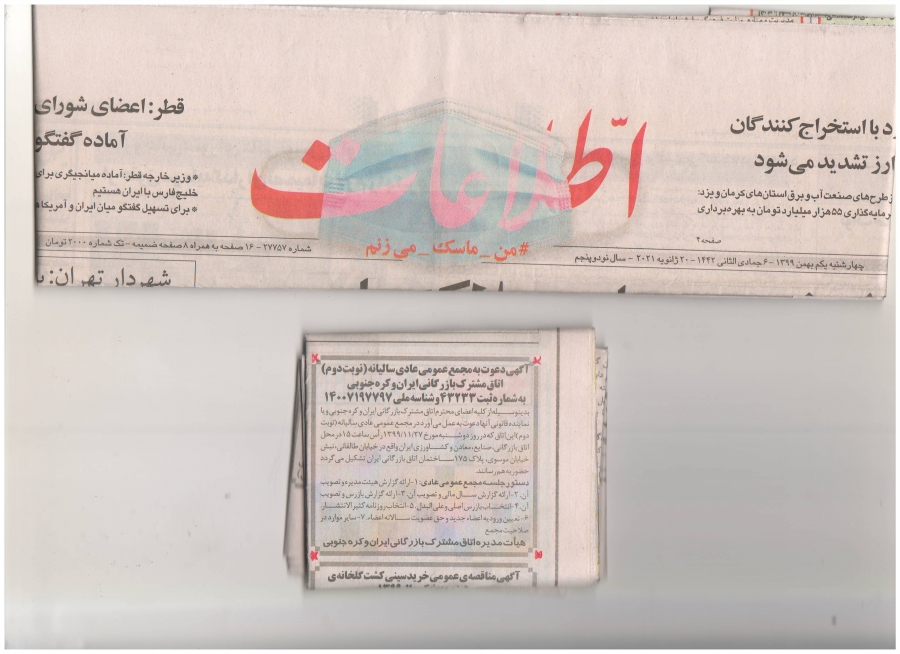 قطر: اعضای شورای
آماده گفتگو
* وزیر خارجه قطر: آماده میانجیگری برای
خلیج‌فارس با ایران هستیم
* برای تسهیل گفتگو میان ایران و آمریکا
شماره ۲۷۷۵۷ - ۱۶ صفحه به همراه ۸ صفحه ضمیمه - تک شماره ۲۰۰۰ تومان
شهردار تهران:
اطلاعات
#من_ماسک_می‌زنم
با استخراج کنندگان
ارز تشدید می‌شود
طرح‌های صنعت آب و برق استان‌های کرمان و یزد:
سرمایه‌گذاری ۵۵ هزار میلیارد تومان به بهره‌برداری
صفحه ۲
چهارشنبه یکم بهمن ۱۳۹۹ - ۶ جمادی الثانی ۱۴۴۲ - ۲۰ ژانویه ۲۰۲۱ - سال نود و پنجم
آگهی دعوت به مجمع عمومی عادی سالیانه (نوبت دوم)
اتاق مشترک بازرگانی ایران و کره جنوبی
به شماره ثبت ۴۳۲۳۳ و شناسه ملی ۱۴۰۰۷۱۹۷۷۹۷
بدینوسیله از کلیه اعضای محترم اتاق مشترک بازرگانی ایران و کره جنوبی و یا
نماینده قانونی آنها دعوت به عمل می آورد در مجمع عمومی عادی سالیانه (نوبت
دوم) این اتاق که در روز دوشنبه مورخ ۱۳۹۹/۱۱/۲۷ رأس ساعت ۱۵ در محل
اتاق بازرگانی، صنایع، معادن و کشاورزی ایران واقع در خیابان طالقانی، نبش
خیابان موسوی، پلاک ۱۷۵ ساختمان اتاق بازرگانی ایران تشکیل می گردد
حضور به هم رسانند.
دستور جلسه مجمع عمومی عادی: ۱- ارائه گزارش هیئت مدیره و تصویب
آن. ۲- ارائه گزارش سال مالی و تصویب آن. ۳- ارائه گزارش بازرس و تصویب
آن. ۴- انتخاب بازرس اصلی و علی البدل. ۵- انتخاب روزنامه کثیر الانتشار
۶- تعیین ورودیه اعضاء جدید و حق عضویت سالانه اعضاء. ۷- سایر موارد در
صلاحیت مجمع
هیأت مدیره اتاق مشترک بازرگانی ایران و کره جنوبی
آگهی مناقصه‌ی عمومی خرید سینی کشت گلخانه‌ی